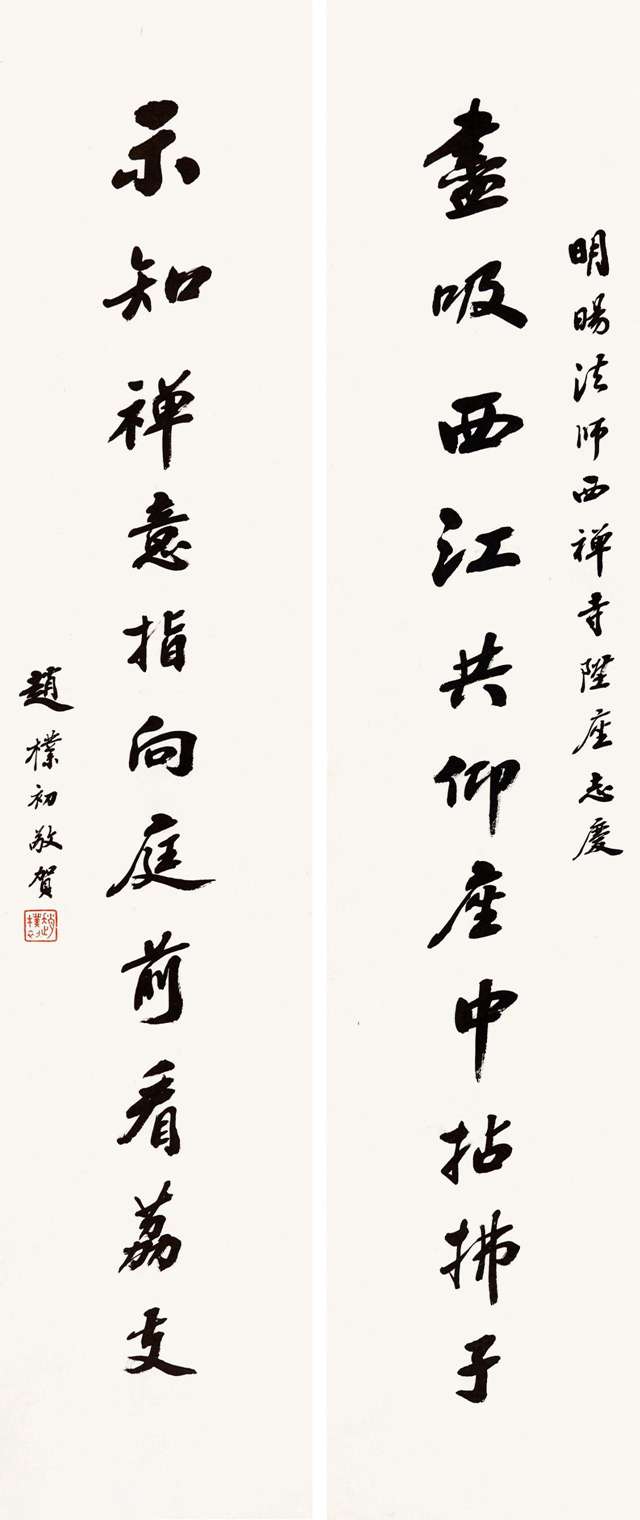 明暘法师西禅寺陞座志慶
盡吸西江共仰座中拈拂子
示知禅意指向庭前看荔支
趙樸初敬賀
趙樸初